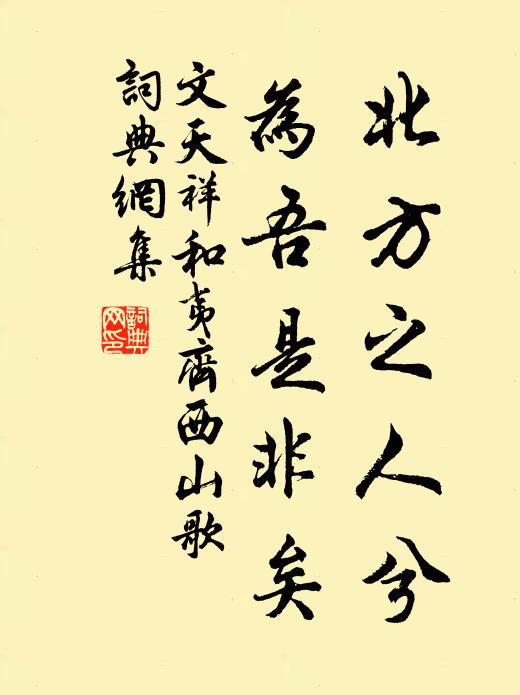 北方之人兮
為吾是非矣
文天祥和夷齊西山歌
詞典網集
詞典
网印